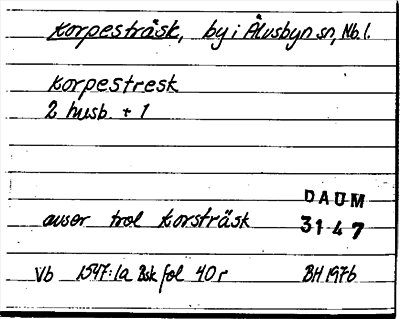 Korpesträsk, by i Älvsbyn sn, Nb.l.
Korpestresk
2 husb. + 1
DAUM
avser trol Korsträsk
3147
Vb 1547:1a Bsk fol 40 r BH 1976